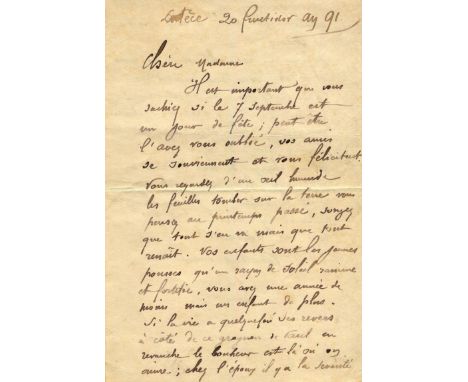 Lutèce 20 fructidor an 91
Chère Madame
Il est important que vous
sachiez si le 7 septembre est
un jour de fête ; peut être
l'avez vous oublié, vos amis
se souviennent et vous félicitent.
Vous regardez d'un œil humide
les feuilles tomber sur la terre vous
pensez au printemps passé, songez
que tout s'en va mais que tout
renaît. Vos enfants sont les jeunes
pousses qu'un rayon de soleil ranime
et fortifie, vous avez une année de
moins mais un enfant de plus.
Si la vie a quelquefois des revers
à côté de ce de en
revanche le bonheur est là où on
aime ; chez l'époux il y a la